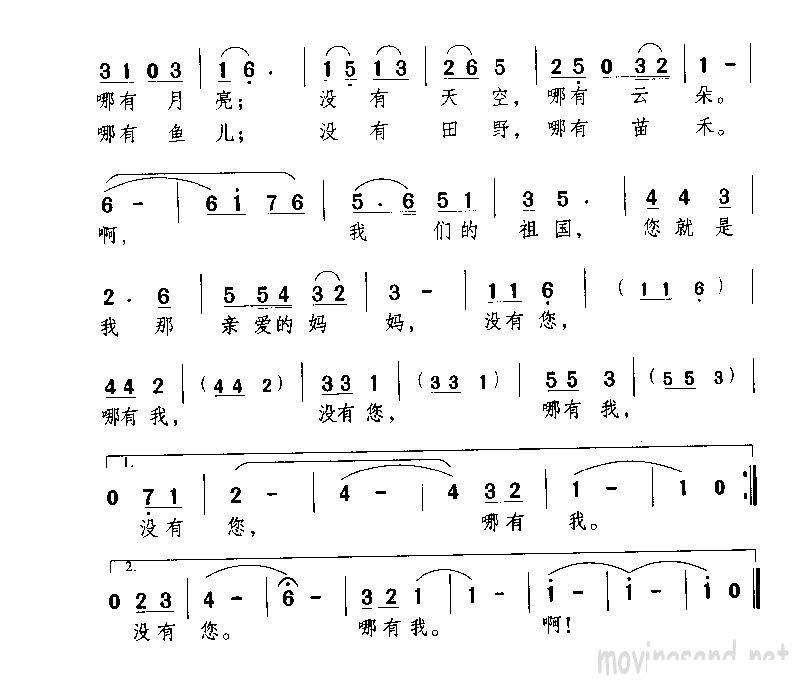 3 1 0 3 | 1 6 . | 1 5 1 3 | 2 6 5 | 2 5 0 3 2 | 1 - |
哪有月亮；没有天空，哪有云朵。
哪有鱼儿；没有田野，哪有苗禾。
6 - | 6 i 7 6 | 5 . 6 5 1 | 3 5 . | 4 4 3 |
啊，我们的祖国，您就是
2 . 6 | 5 5 4 3 2 | 3 - | 1 1 6 | (1 1 6) |
我那亲爱的妈妈，没有您，
4 4 2 | (4 4 2) | 3 3 1 | (3 3 1) | 5 5 3 | (5 5 3) |
哪有我，没有您，哪有我，
1.
0 7 1 | 2 - | 4 - | 4 3 2 | 1 - | 1 0 :||
没有您，哪有我。
2.
0 2 3 | 4 - | 6 - | 3 2 1 | 1 - | i - | i - | i 0 ||
没有您。哪有我。啊！
movingsand.net